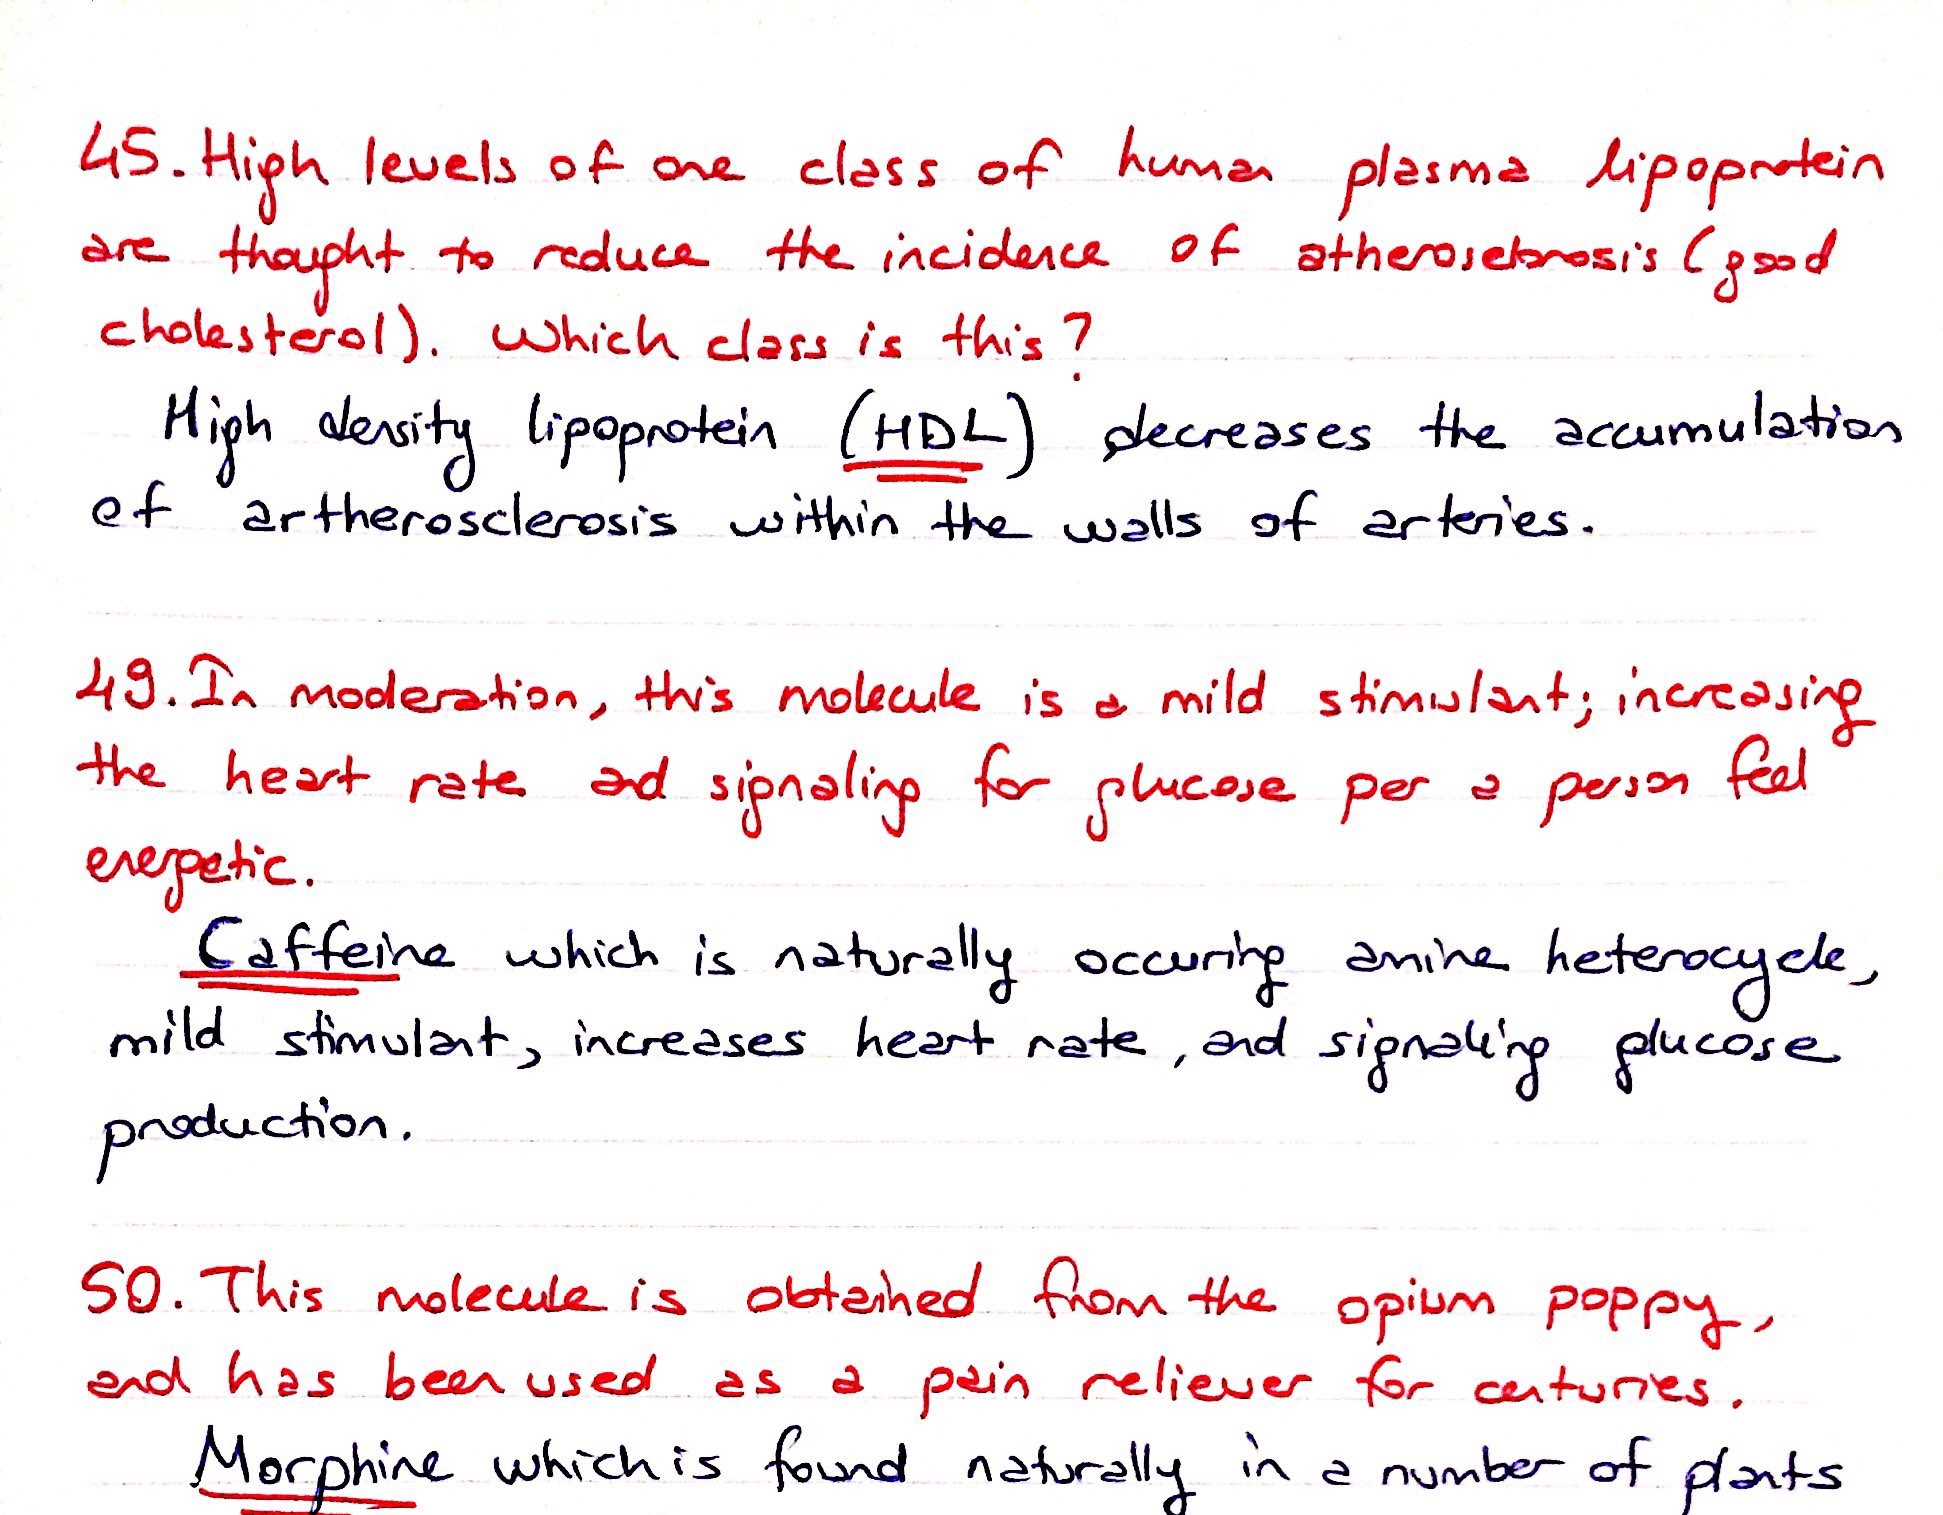 45. High levels of one class of human plasma lipoprotein
are thought to reduce the incidence of atherosclerosis (good
cholesterol). Which class is this?
High density lipoprotein (HDL) decreases the accumulation
of artherosclerosis within the walls of arteries.
49. In moderation, this molecule is a mild stimulant; increasing
the heart rate and signaling for glucose per a person feel
energetic.
Caffeine which is naturally occuring amine heterocycle,
mild stimulant, increases heart rate, and signaling glucose
production.
50. This molecule is obtained from the opium poppy,
and has been used as a pain reliever for centuries.
Morphine which is found naturally in a number of plants